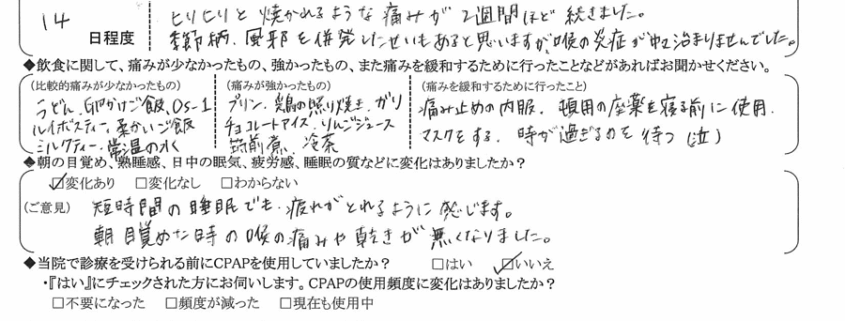 14 日程度
ヒリヒリと焼かれるような痛みが2週間ほど続きました。
季節柄、風邪を併発したせいもあると思いますが喉の炎症が中々治まりませんでした。
◆飲食に関して、痛みが少なかったもの、強かったもの、また痛みを緩和するために行ったことなどがあればお聞かせください。
(比較的痛みが少なかったもの)
うどん、卵かけご飯、OS-1
ルイボスティー、柔かいご飯
ミルクティー、常温の水
(痛みが強かったもの)
プリン、鶏の照り焼き、ガリ
チョコレートアイス、りんごジュース
筑前煮、冷茶
(痛みを緩和するために行ったこと)
痛み止めの内服、頓用の座薬を寝る前に使用、
マスクをする、時が過ぎるのを待つ(泣)
◆朝の目覚め、熟睡感、日中の眠気、疲労感、睡眠の質などに変化はありましたか?
☑変化あり □変化なし □わからない
(ご意見) 短時間の睡眠でも、疲れがとれるように感じます。
朝目覚めた時の喉の痛みや乾きが無くなりました。
◆当院で診療を受けられる前にCPAPを使用していましたか? □はい ☑いいえ
・『はい』にチェックされた方にお伺いします。CPAPの使用頻度に変化はありましたか?
□不要になった □頻度が減った □現在も使用中